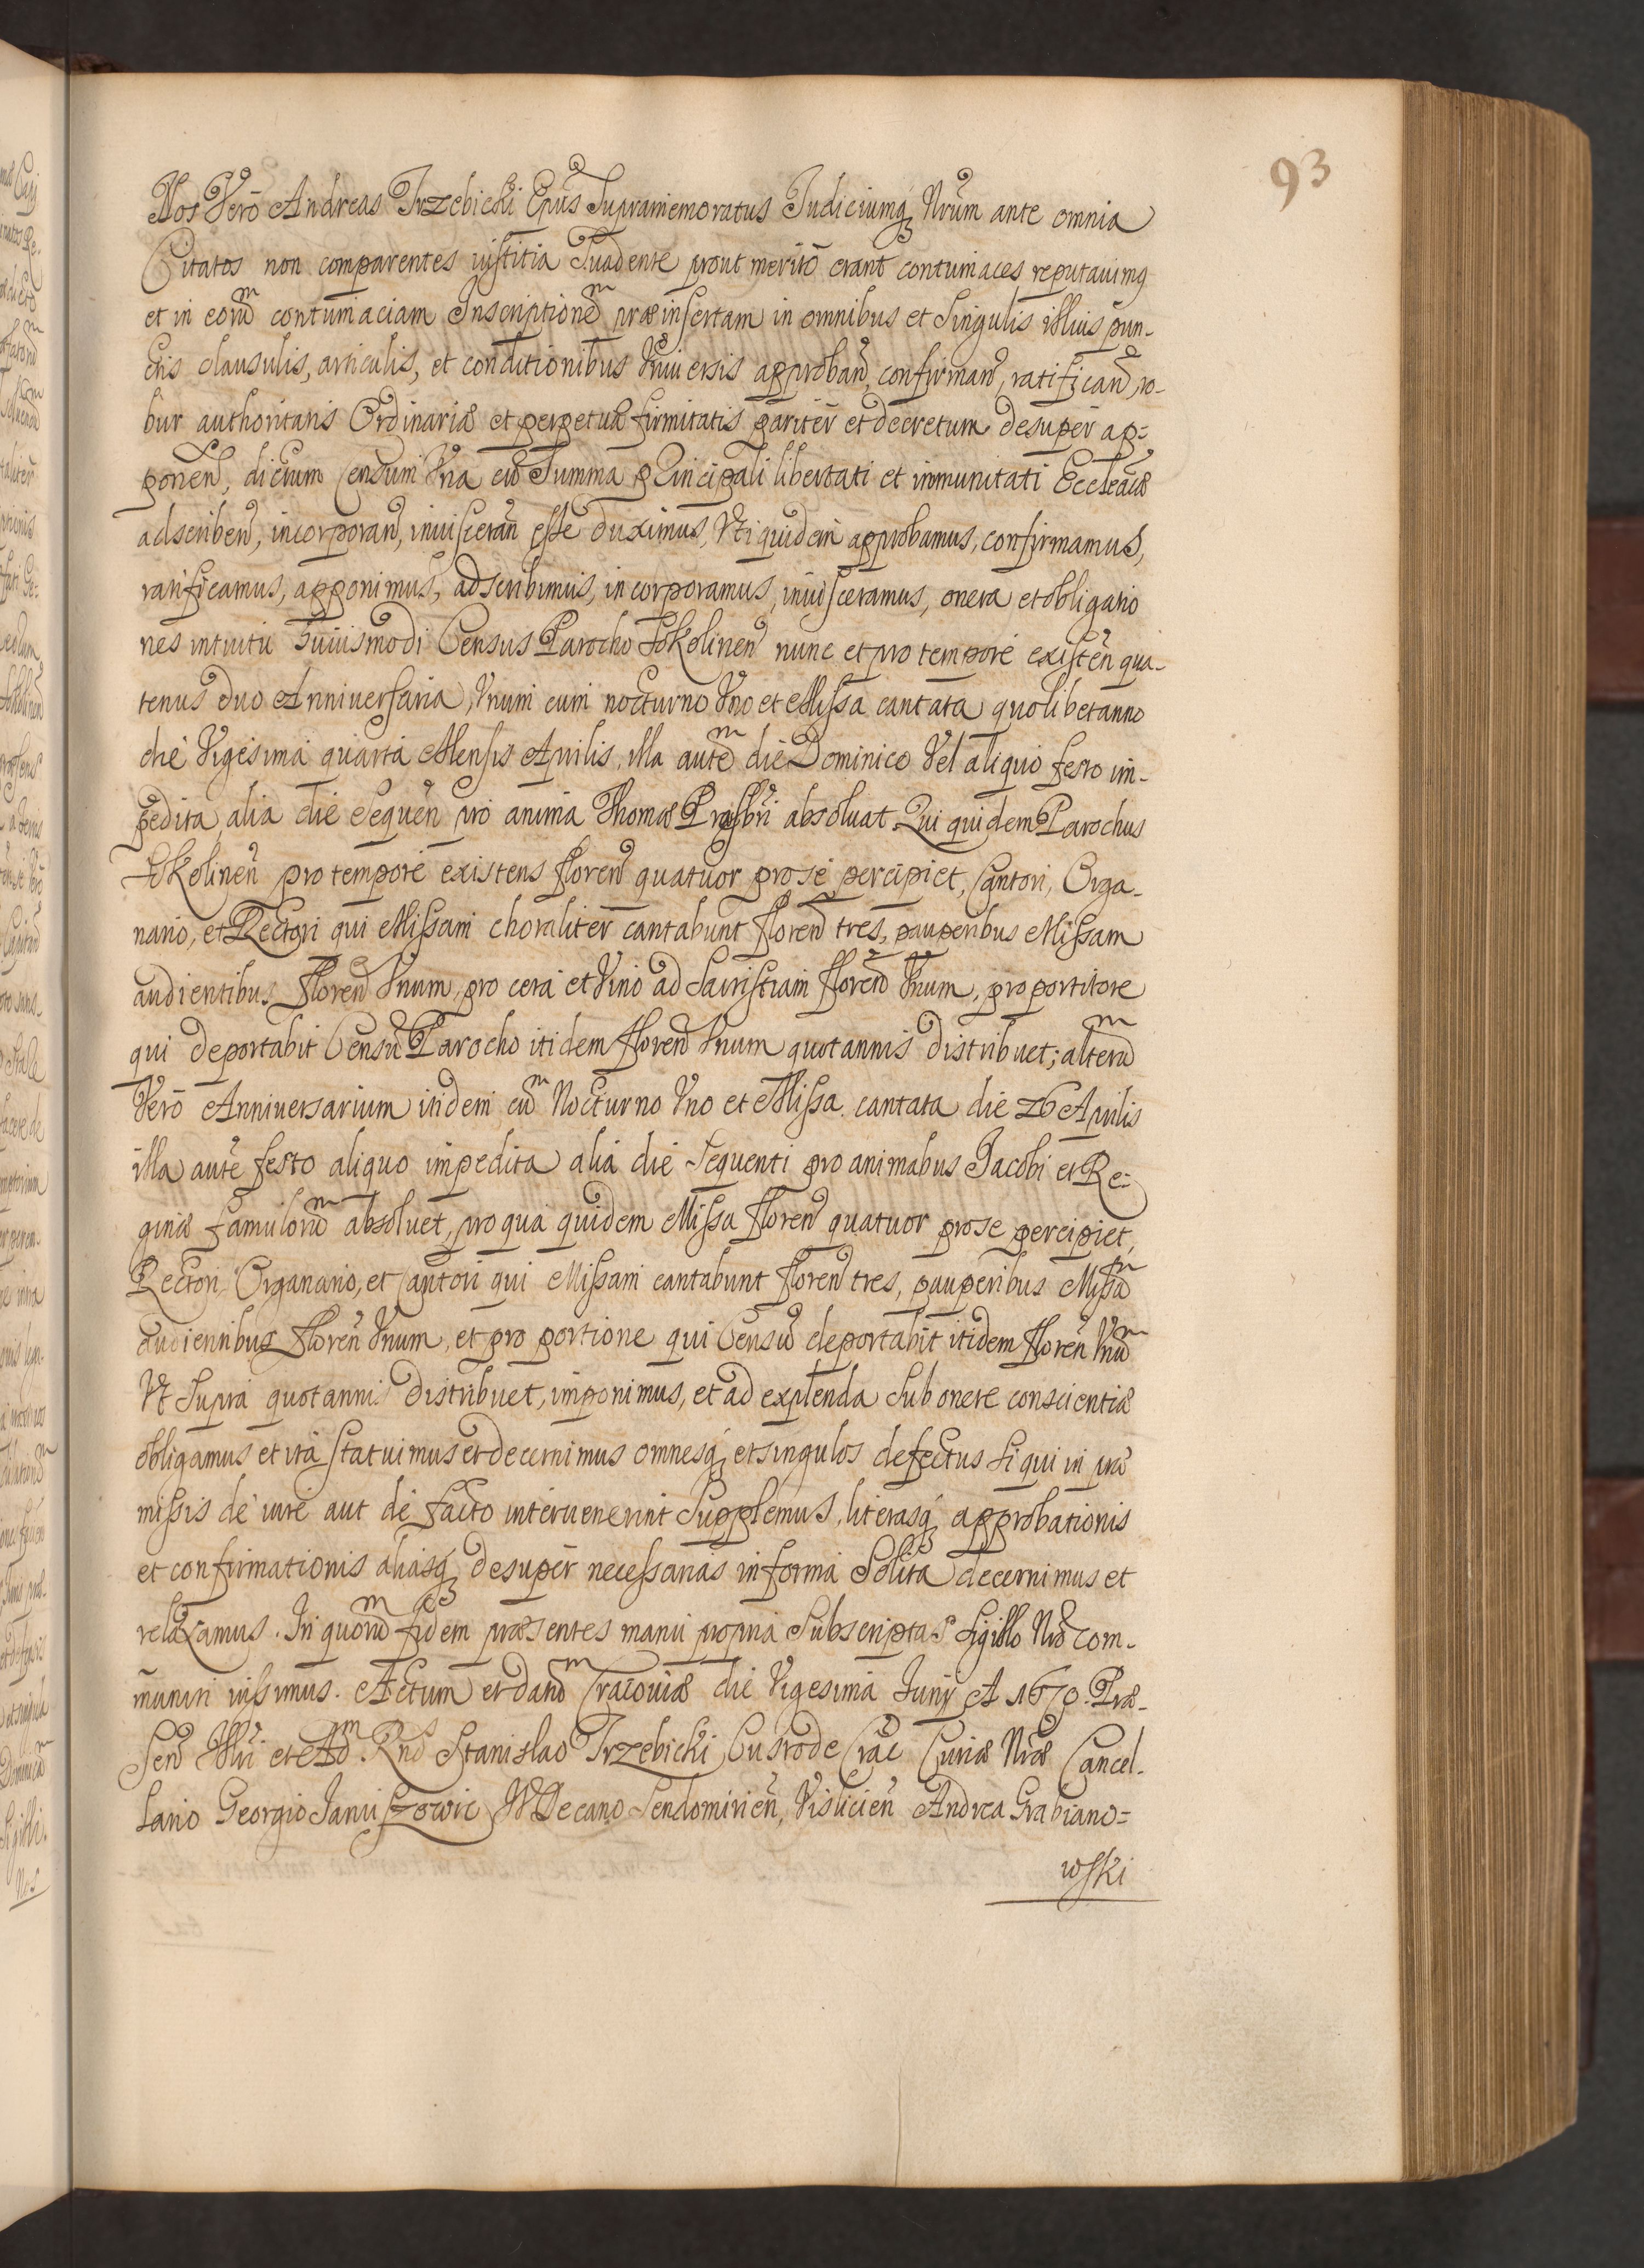 93
Nos Verò Andreas Trzebicki Epūs Supramemoratus Judiciumq̄ Nrūm ante omnia
Citatos non comparentes iustitia Suadente prout meritò erant contumaces reputauimq
et in eorū contumaciam Inscriptionē præinsertam in omnibus et Singulis illius pun-
ctis clausulis, articulis, et conditionibus Vniuersis approbañ, confirmañ, ratificañ, ro-
bur authoritatis Ordinariæ et perpetuæ firmitatis paritèr et decretum desupèr ap=
ponen̄, dictum Censum Vna cū Summa principali libertati et immunitati Eccleācæ
adscriben̄, incorporan̄, inuisceran̄ esse duximus, Vti quidem approbamus, confirmamus,
ratificamus, apponimus, adscribimus, incorporamus, inuisceramus, onera et obligatio
nes intuitu huiusmodi Census Parocho Sokolinen̄ nunc et pro tempore existēn qua-
tenus duo Anniuersaria, Vnum cum nocturno Vno et Missa cantata quolibet anno
die Vigesima quarta Mensis Aprilis, illa autē die Dominico Vel aliquo festo im-
pedita, alia die Sequen̄ pro anima Thomæ Præsbri absoluat. Qui quidem Parochus
Sokolinen̄ pro tempore existens floren̄ quatuor pro se percipiet, Cantori, Orga-
nario, et Rectori qui Missam choralitèr cantabunt floren̄ tres, pauperibus Missam
audientibus floren̄ Vnum, pro cera et Vino ad Sacristiam floren̄ Vnum, pro portitore
qui deportabit Censū Parocho itidem floren̄ Vnum quotannis distribuet; alterū
Verò Anniuersarium itidem cū Nocturno Vno et Missa cantata die 26 Aprilis
illa autē festo aliquo impedita alia die Sequenti pro animabus Jacobi et Re=
ginæ famulorū absoluet, pro qua quidem Missa floren̄ quatuor pro se percipiet,
Rectori, Organario, et Cantori qui Missam cantabunt floren̄ tres, pauperibus Missā
audientibus floren̄ Vnum, et pro portione qui Censū deportabit itidem floren̄ Vnū
Vt Supra quotannis distribuet, imponimus, et ad explenda Sub onere conscientiæ
obligamus et ita statuimus et decernimus omnesq̄ et singulos defectus Si qui in præ
missis de iure aut de facto interuenerint Supplemus, literasq̄ approbationis
et confirmationis aliasq̄ desupèr necessarias in forma Solita decernimus et
relaxamus. In quorū fidem præsentes manu propria Subscriptas Sigillo Nrō com-
muniri iussimus. Actum et datū Cracouiæ die Vigesima Junij A 1670. Præ-
Sen̄ Illri et Adm Rndo Stanislao Trzebicki Custode Crac Curiæ Nræ Cancel-
lario Georgio Januszowic Decano Sendomirien̄, Visliciēn Andrea Grabiano=
wski